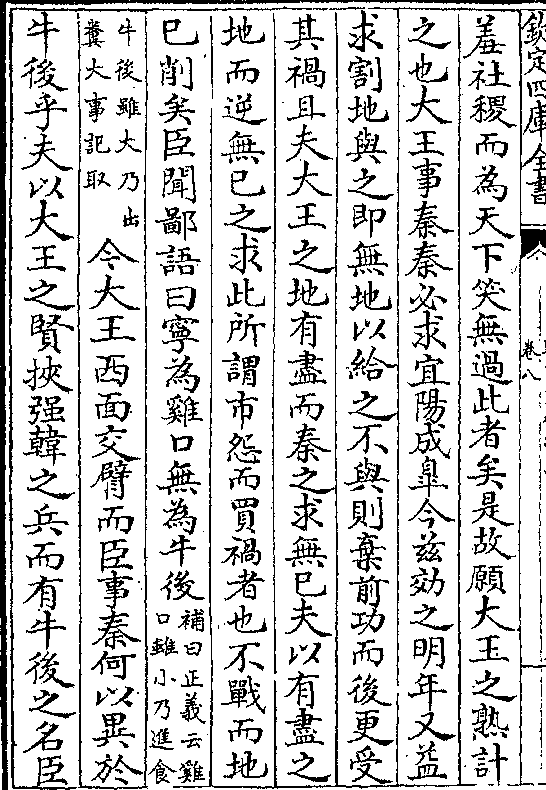 欽定四庫全書
卷八
羞社稷而為天下笑無過此者矣是故願大王之熟計
之也大王事秦秦必求宜陽成臯今兹効之明年又益
求割地與之即無地以給之不與則棄前功而後更受
其禍且夫大王之地有盡而秦之求無已夫以有盡之
地而逆無已之求此所謂市怨而買禍者也不戰而地
已削矣臣聞鄙語曰寧為雞口無為牛後
補曰正義云雞
口雖小乃進食
牛後雖大乃出
糞大事記取
今大王西面交臂而臣事秦何以異於
牛後乎夫以大王之賢挾强韓之兵而有牛後之名臣